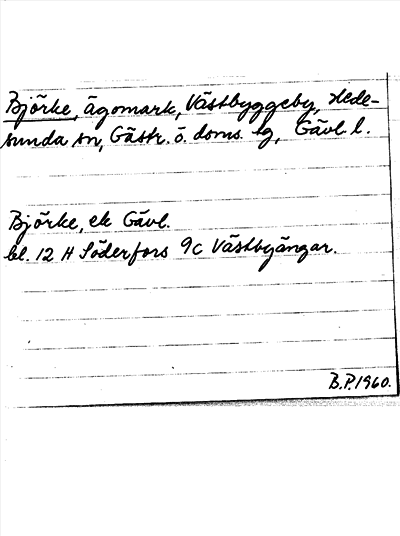 Björke, ägomark, Västbyggeby, Hede-
sunda sn, Gästr. ö. doms. lg, Gävl. l.
Björke, ek Gävl.
bl. 12 H Söderfors 9c Västbyängar.
B.P. 1960.